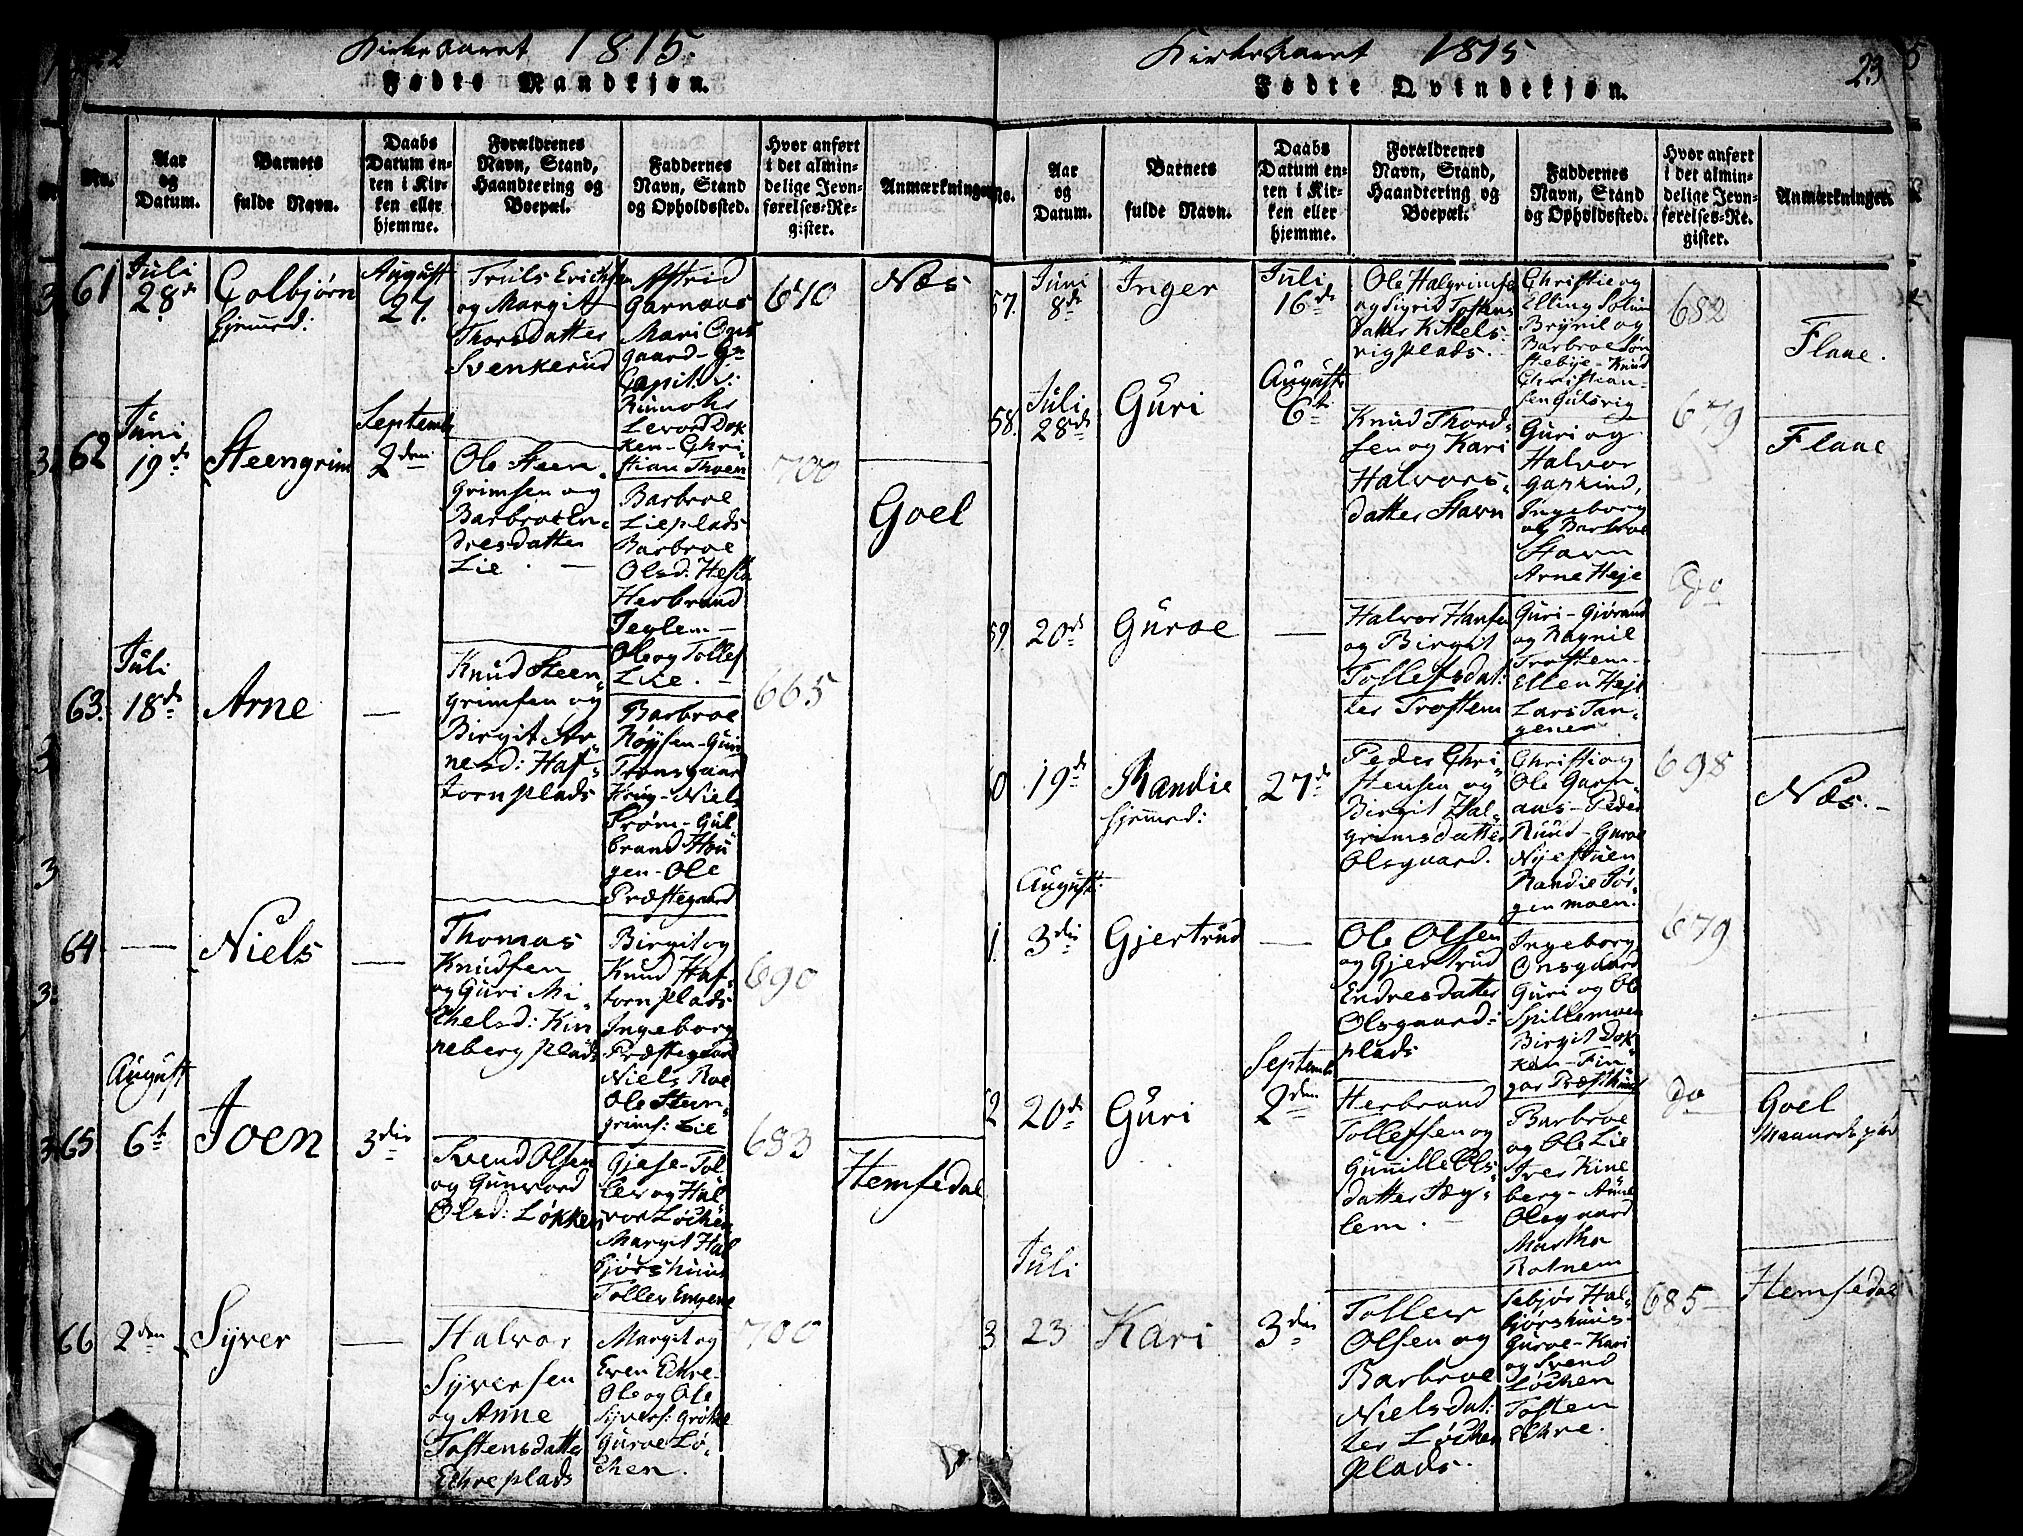 Kirkeaaret 1815.
Fødte Mandkjøn.
No.
Aar
og
Datum.
Barnets
fulde Navn.
Daabs
Datum en-
ten i Kir-
ken eller
hjemme.
Forældrenes
Navn, Stand,
Haandtering og
Boepæl.
Faddernes
Navn, Stand
og Opholdssted.
Hvor anført
i det almin-
delige Jevn-
førelses-Re-
gister.
Anmærkninger
61
Juli
28de
Colbjørn
hjemmed:
August
27.
Truls Erichsen
og Margit
Thorsdatter
Svenkerud
Astrid
Garnaas
Mari
gaard
Capit:
Levord Dok
ken - Chri-
stian Thoen
670
Næs
62
Juni
19de
Steengrim
Septembr
2den
Ole Steen-
grimsen og
Barbroe En-
dresdatter
Lie. —
Barbroe
Lieplads
Barbroe
Olsd: Hesla
Herbrand
Teglem —
Ole og Tollef
Lie. —
700
Goel
63.
Juli
18de
Arne
—
Knud Steen-
grimsen og
Birgit Ar-
nesd: Haf-
tornplads
Barbroe
Røysen - Guri
Tronsgaard
Niels
Prøm - Gul
brand Hou
gen - Ole
Præstegaard
665
64
—
Niels
—
Thomas
Knudsen
og Guri Mi-
chelsd: Kin
neberg plads
Birgit og
Knud Haf-
tornplads
Ingeborg
Præstegaard
Niels Roe
Ole Steen-
grims: Lie
690
65
August
6te
Joen
3die
Svend Olsen
og Gunvord
Olsd: Løkken
Gjese - Tol
lev og Hal
vor Løchen
Margit Hal
bjørshuus
Tollev Engene
683
Hemsedal
66
2den
Syver
—
Halvor
Syversen
og Anne
Tostensdatter
Echreplads
Margit og
Even Echre -
Ole og Ole
Syvers: Grøthe
Guroe Lø-
chen.
700
Kirkeaaret 1815
23
Fødte Qvindekjøn.
No.
Aar
og
Datum.
Barnets
fulde Navn.
Daabs
Datum en-
ten i Kir-
ken eller
hjemme.
Forældrenes
Navn, Stand,
Haandtering og
Boepæl.
Faddernes
Navn, Stand
og Opholdssted.
Hvor anført
i det almin-
delige Jevn-
førelses-Re-
gister.
Anmærkninger.
57.
Juni
8de
Inger
Juli
16de
Ole Halgrimsen
og Sigrid Tostens
datter Kittels-
vigplads.
Christie og
Elling Solum
Brynil og
Barbroe Søn
stebye - Knud
Christian-
sen Gulsvig
682
Flaae.
58.
Juli
28de
Guri
August
6te
Knud Thord-
sen og Kari
Halvors-
datter Stavn
Guri og
Halvor
Gaptind,
Ingeborg
og Barbroe
Stavn
Arne Heje
679
Flaae
59
20de
Guroe
—
Halvor Hansen
og Birgit
Tollefsdat-
ter Trostem
Guri - Gjørand
og Ragnil
Trostem -
Ellen Heje
Lars Tan-
genen
do
—
60
19de
Randie
hjemmed:
27de
Peder Chri-
stensen og
Birgit Hal-
grimsdatter
Olsgaard.
Christi og
Ole Garn-
aas - Peder
Ruud - Guroe
Nyestuen
Randie Jør-
genmoen.
698
Næs. —
1.
August:
3die
Gjertrud
—
Ole Olsen
og Gjertrud
Endresdatter
Olsgaard-
plads
Ingeborg
Onsgaard
Guri og Ole
Spillemoen
Birgit Dok
ken - Fin-
gar Præsthuus
679
—
2
20de
Guri
Septembr
2den
Herbrand
Tollefsen og
Gunnille Ols
datter Teg-
lem. —
Barbroe
og Ole Lie
Iver Kine
berg - Anne
Olsgaard
Martha
Rotnem
do
Goel
3
Juli
23
Kari
3die
Tollev
Olsen og
Barbroe
Nielsdat-
ter Løchen
plads.
Sebjør Hal-
bjørshuus -
Guroe - Kari
og Svend
Løchen
Tosten
Echre.
685 —
Hemsedal